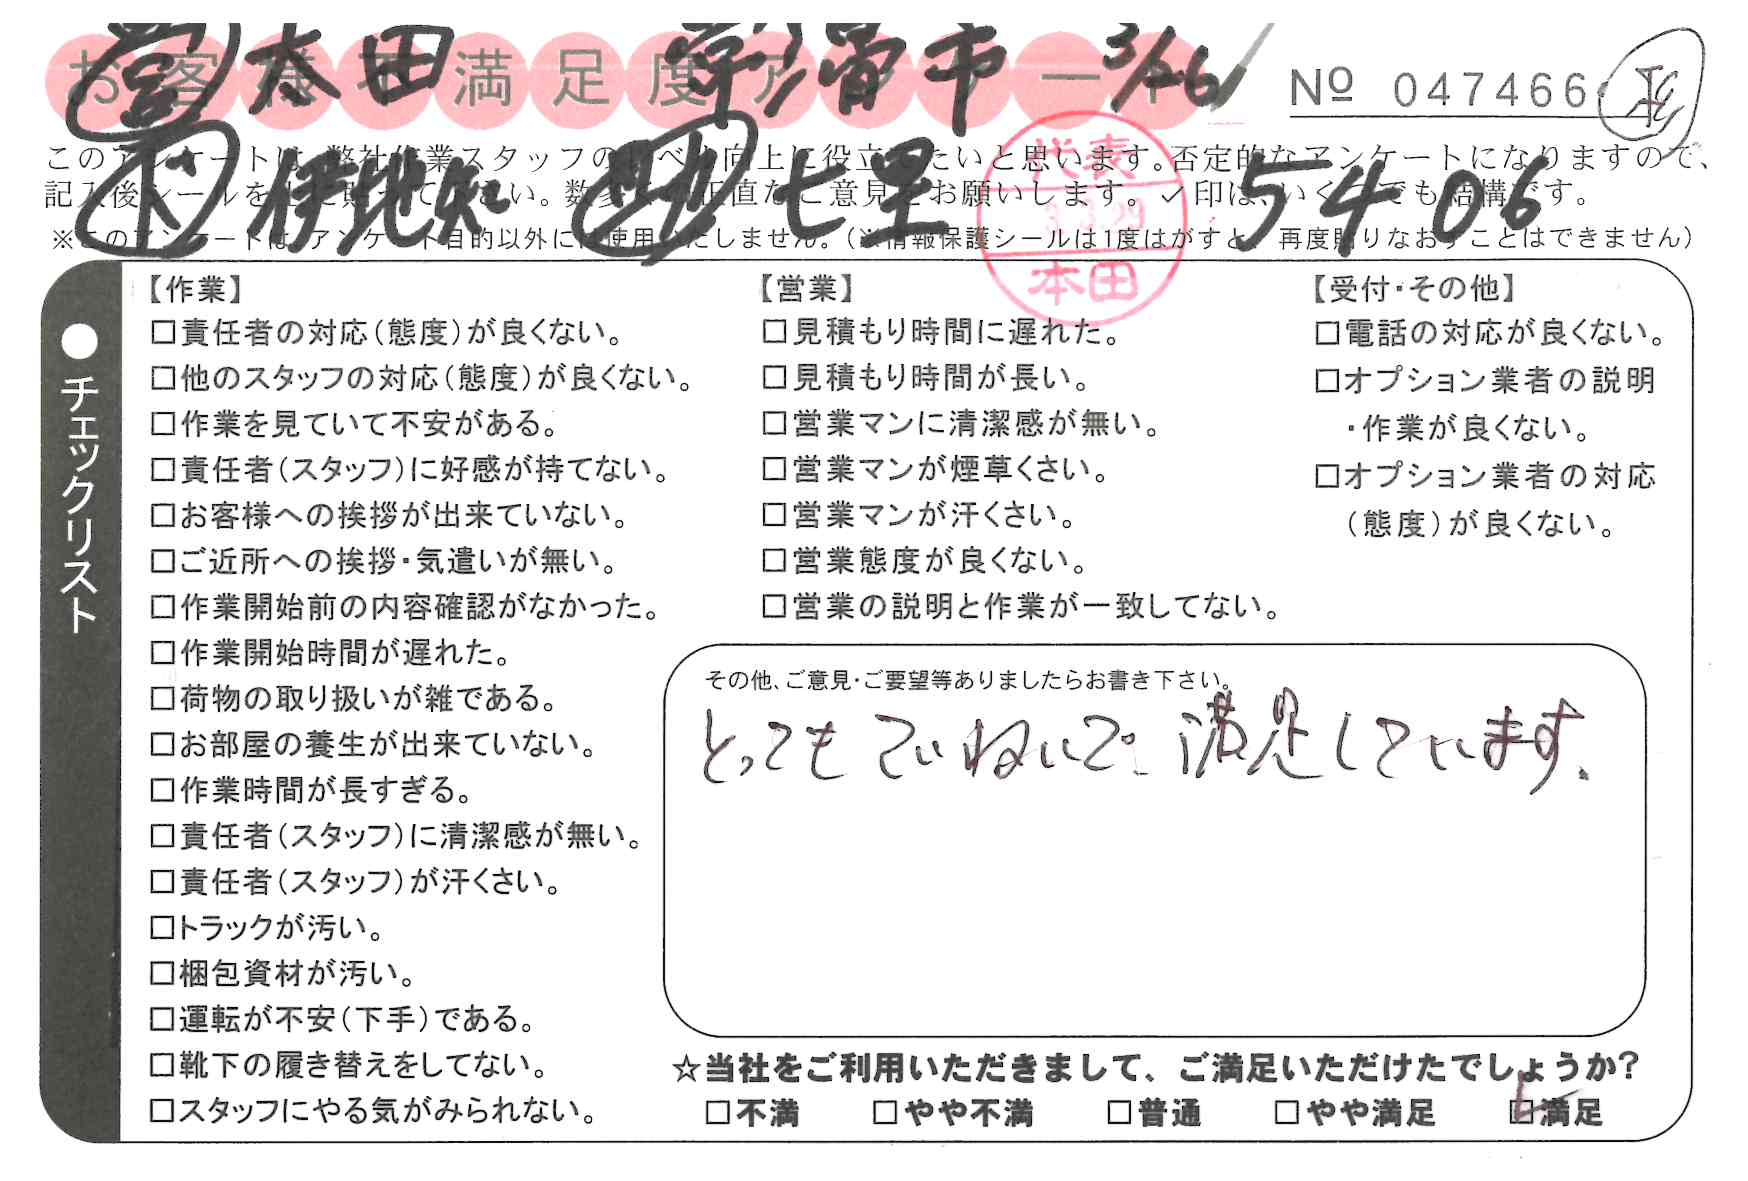 お客様不満足度アンケート
営 本田 常滑市 3/26
№ 047466
このアンケートは、弊社作業スタッフのレベル向上に役立てたいと思います。否定的なアンケートになりますので、
記入後シールを上に貼って下さい。数多くの正直なご意見をお願いします。✓印は、いくつでも結構です。
下 伊地知 助 七里 5406
※このアンケートは、アンケート目的以外には使用いたしません。(※情報保護シールは1度はがすと、再度貼りなおすことはできません)
代表
3.3.29
本田
●チェックリスト
【作業】
□責任者の対応(態度)が良くない。
□他のスタッフの対応(態度)が良くない。
□作業を見ていて不安がある。
□責任者(スタッフ)に好感が持てない。
□お客様への挨拶が出来ていない。
□ご近所への挨拶・気遣いが無い。
□作業開始前の内容確認がなかった。
□作業開始時間が遅れた。
□荷物の取り扱いが雑である。
□お部屋の養生が出来ていない。
□作業時間が長すぎる。
□責任者(スタッフ)に清潔感が無い。
□責任者(スタッフ)が汗くさい。
□トラックが汚い。
□梱包資材が汚い。
□運転が不安(下手)である。
□靴下の履き替えをしてない。
□スタッフにやる気がみられない。
【営業】
□見積もり時間に遅れた。
□見積もり時間が長い。
□営業マンに清潔感が無い。
□営業マンが煙草くさい。
□営業マンが汗くさい。
□営業態度が良くない。
□営業の説明と作業が一致してない。
【受付・その他】
□電話の対応が良くない。
□オプション業者の説明
・作業が良くない。
□オプション業者の対応
(態度)が良くない。
その他、ご意見・ご要望等ありましたらお書き下さい。
とってもていねいで、満足しています。
☆当社をご利用いただきまして、ご満足いただけたでしょうか?
□不満 □やや不満 □普通 □やや満足 ☑満足